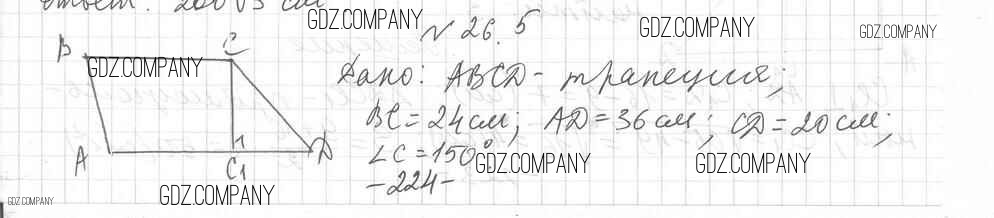 Ответ: 200√3 см
GDZ.COMPANY
№ 26.5
GDZ.COMPANY
GDZ.COMPANY
B
C
GDZ.COMPANY
Дано: ABCD - трапеция;
BC = 24 см; AD = 36 см; CD = 20 см;
A
C₁
D
∠C = 150°
GDZ.COMPANY
GDZ.COMPANY
-224-
GDZ.COMPANY
GDZ.COMPANY